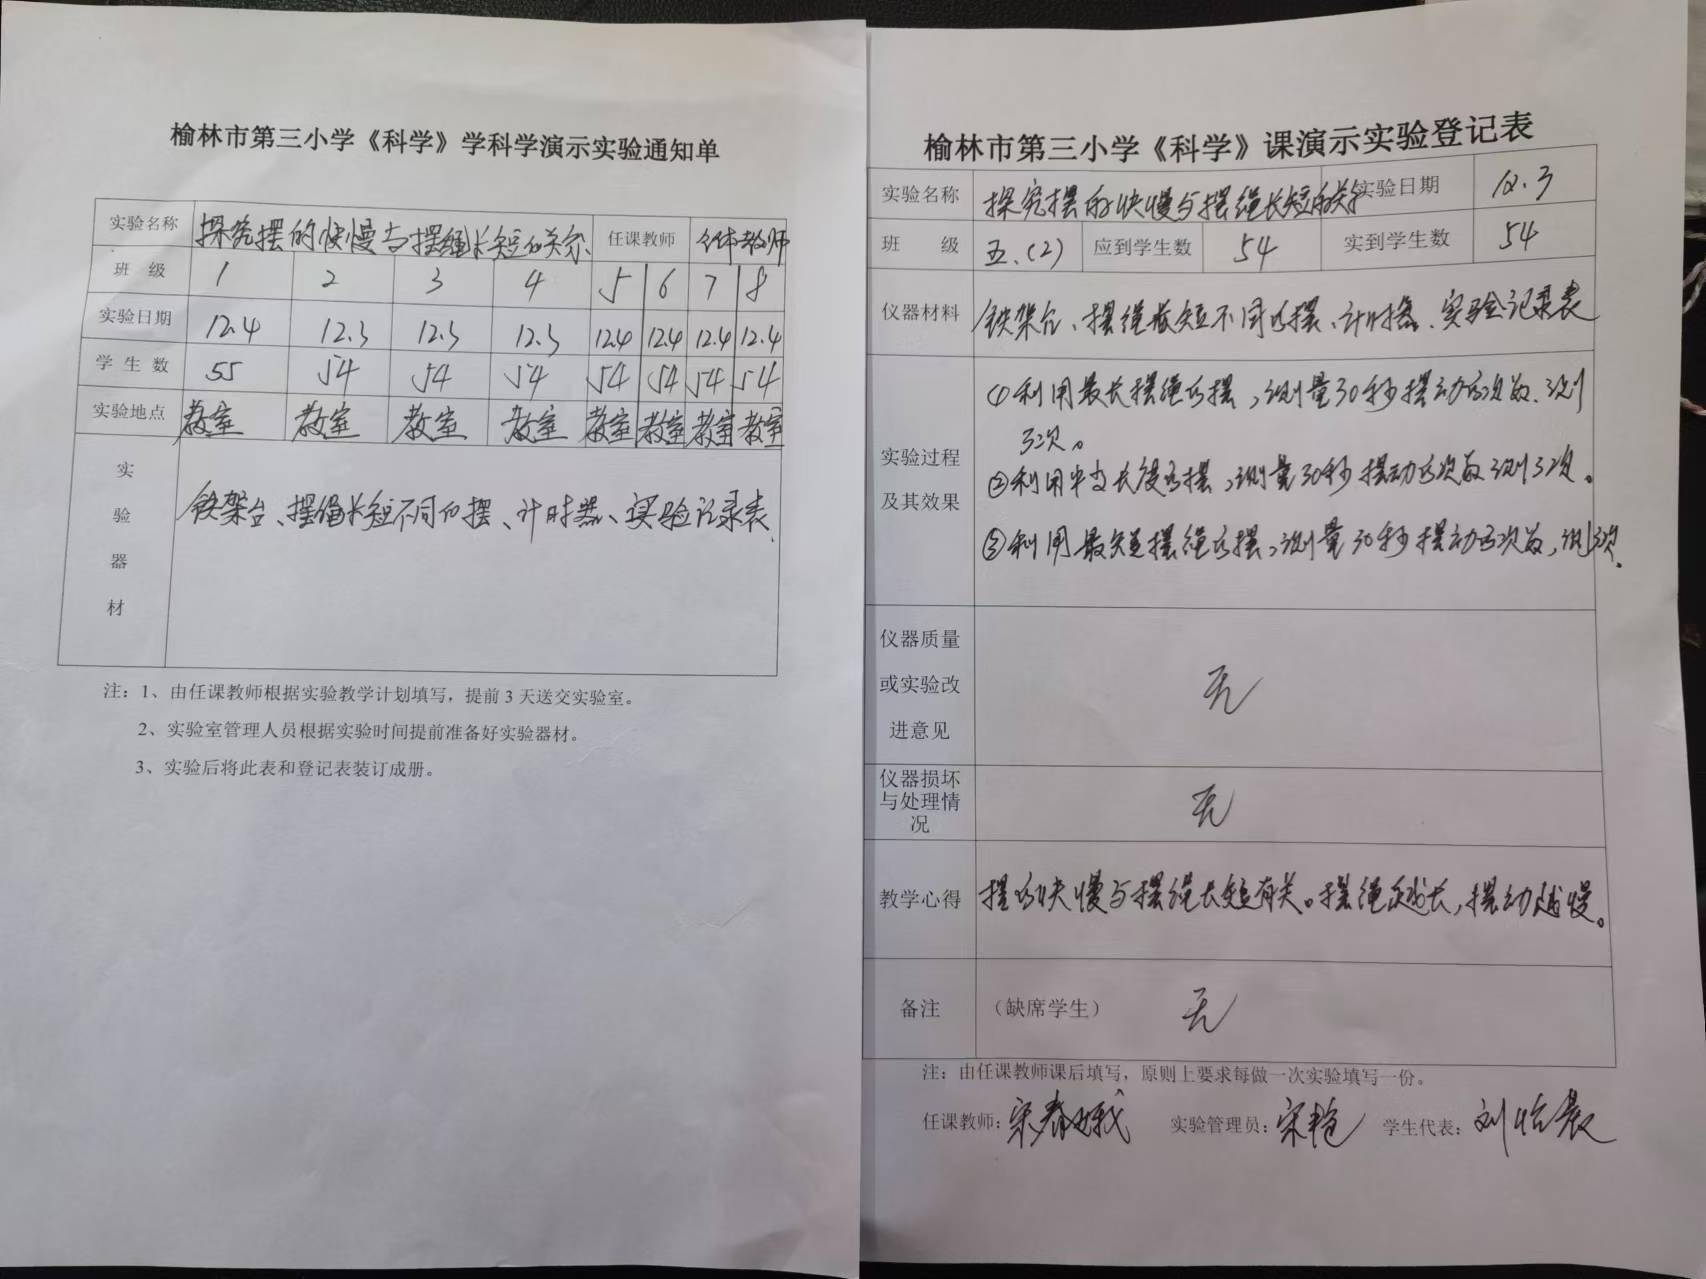 榆林市第三小学《科学》学科学演示实验通知单
实验名称 探究摆的快慢与摆绳长短的关系 任课教师 全体教师
班 级 1 2 3 4 5 6 7 8
实验日期 12.4 12.3 12.3 12.3 12.4 12.4 12.4 12.4
学 生 数 55 54 54 54 54 54 54 54
实验地点 教室 教室 教室 教室 教室 教室 教室 教室
实验器材 铁架台、摆绳长短不同的摆、计时器、实验记录表.
注：1、由任课教师根据实验教学计划填写，提前 3 天送交实验室。
2、实验室管理人员根据实验时间提前准备好实验器材。
3、实验后将此表和登记表装订成册。
榆林市第三小学《科学》课演示实验登记表
实验名称 探究摆的快慢与摆绳长短的关系 实验日期 12.3
班 级 五.(2) 应到学生数 54 实到学生数 54
仪器材料 铁架台、摆绳长短不同的摆、计时器、实验记录表
实验过程及其效果
①利用最长摆绳的摆,测量30秒摆动的次数.测
3次。
②利用中等长度的摆,测量30秒摆动的次数测3次。
③利用最短摆绳的摆,测量30秒摆动的次数,测3次.
仪器质量或实验改进意见 无
仪器损坏与处理情况 无
教学心得 摆的快慢与摆绳长短有关。摆绳越长,摆动越慢。
备注 （缺席学生） 无
注：由任课教师课后填写，原则上要求每做一次实验填写一份。
任课教师：宋春娥 实验管理员：宋艳 学生代表：刘怡晨